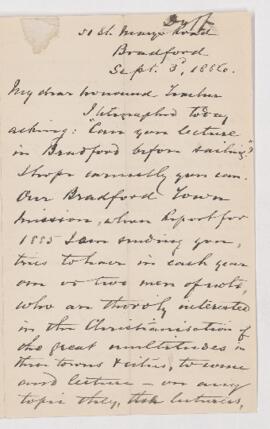 Duff
51 St. Mary's Road
Bradford
Sept. 3d, 1886.
My dear honoured Teacher
I telegraphed to-day
asking: "Can you lecture
in Bradford before sailing?"
I hope earnestly you can.
Our Bradford Town
Mission, whose Report for
1885 I am sending you,
tries to have in each year
one or two men of note,
who are thoroly interested
in the Christianisation of
the great multitudes in
these towns & cities, to come
and lecture – on any
topic they, the lecturers,